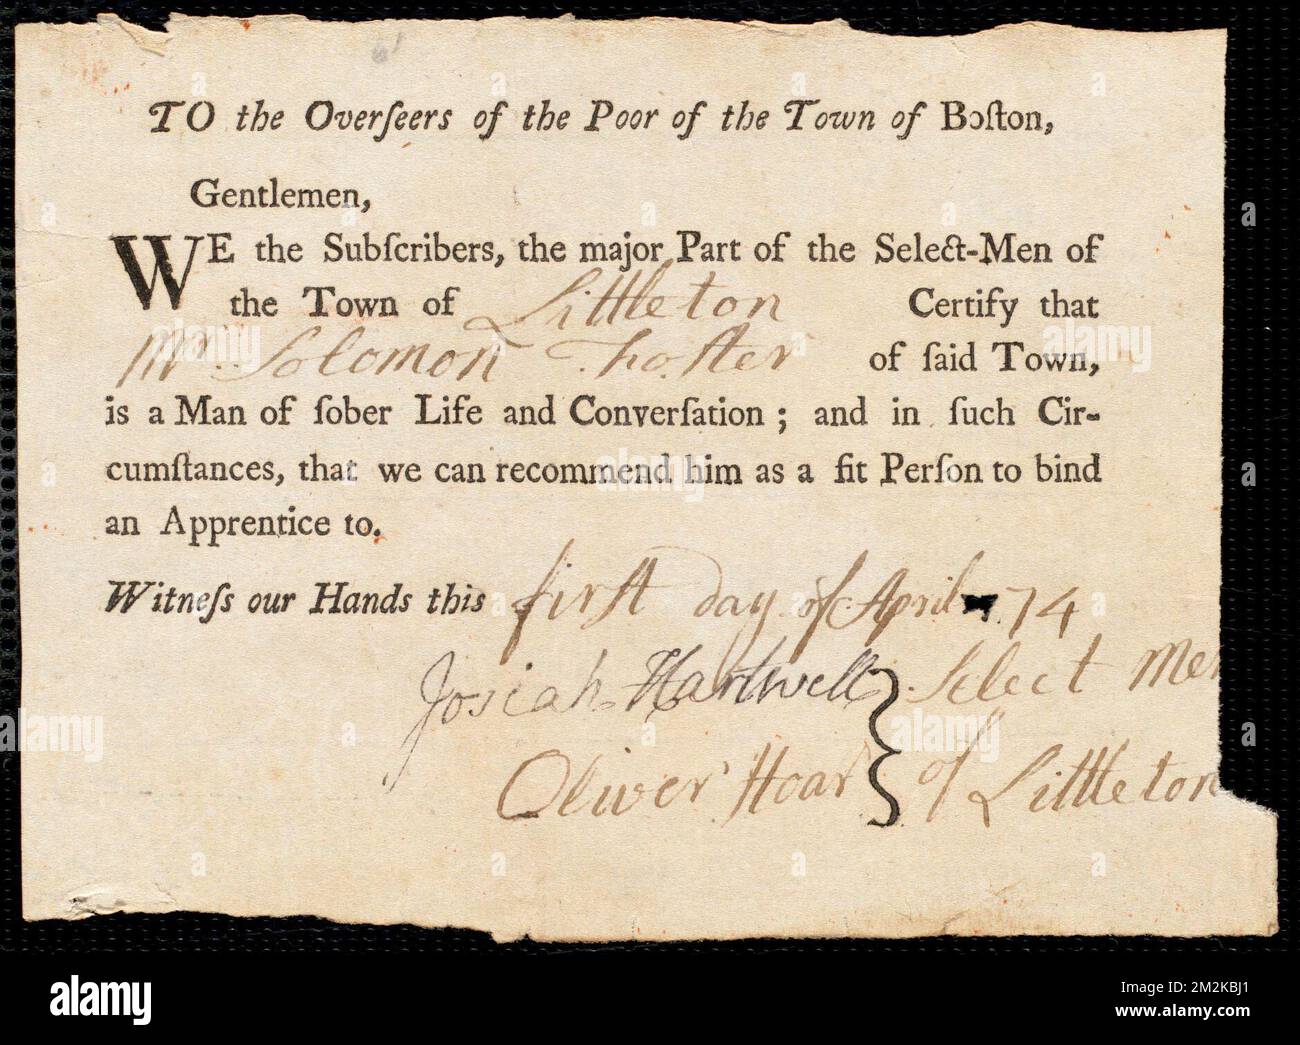 TO the Overſeers of the Poor of the Town of Boſton,
Gentlemen,
WE the Subſcribers, the major Part of the Select-Men of
the Town of Littleton Certify that
Mr. Solomon Foster of ſaid Town,
is a Man of ſober Life and Converſation; and in ſuch Cir-
cumſtances, that we can recommend him as a fit Perſon to bind
an Apprentice to.
Witneſs our Hands this first day of April 74
Josiah Hartwell } Select Men
Oliver Hoar } of Littleton
alamy
Image ID: 2M2KBJ1
www.alamy.com